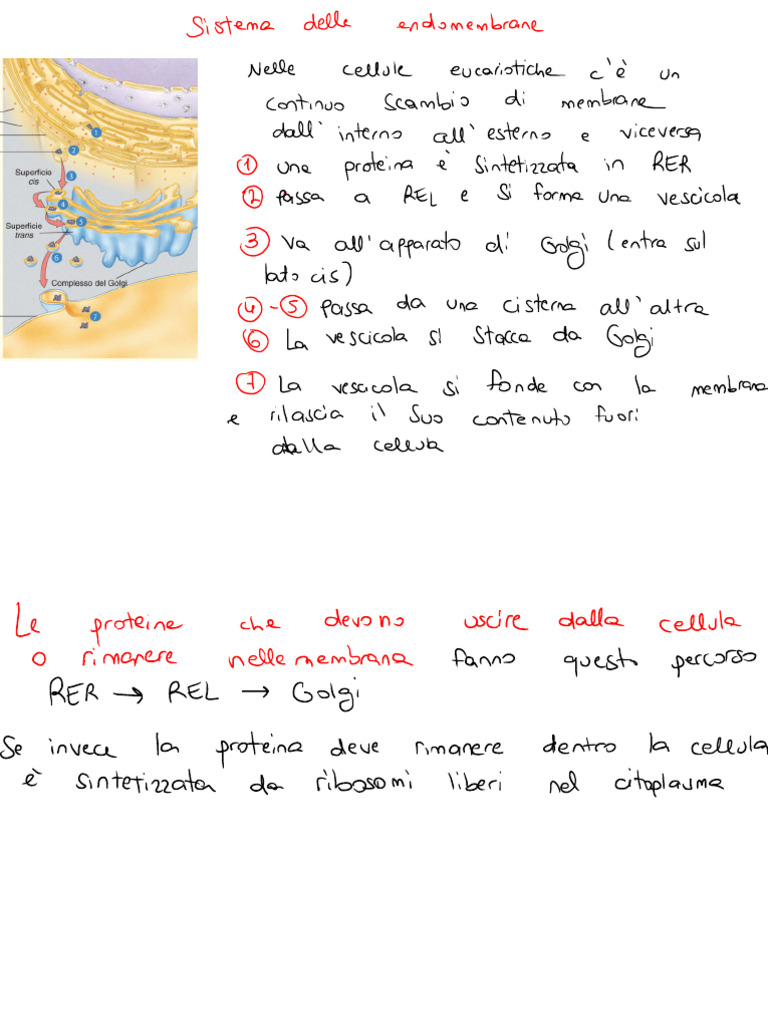 Sistema delle endomembrane
Nelle cellule eucaristiche c'è un
continuo scambio di membrane
dall'interno all'esterno e viceversa
1 una proteina è sintetizzata in RER
2 Passa a REL e si forma una vescicola
3 Va all'apparato di Golgi (entra sul
lato cis)
4-5 Passa da una cisterna all'altra
6 La vescicola si stacca da Golgi
7 La vescicola si fonde con la membrana
e rilascia il suo contenuto fuori
dalla cellula
1
2
3
Superficie
cis
4
5
Superficie
trans
6
Complesso del Golgi
7
Le proteine che devono uscire dalla cellula
o rimanere nelle membrana fanno questo percorso
RER → REL → Golgi
Se invece la proteina deve rimanere dentro la cellula
è sintetizzata da ribosomi liberi nel citoplasma